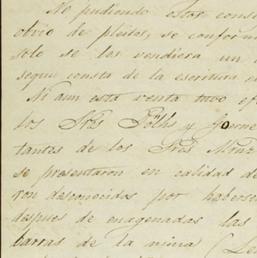 No pudiendo estar cons
obvio de pleitos, se confor
solo se los vendiera un
segun consta de la escritura
Ni aun esta venta tuvo ef
los Sres y
tantas de los Sres
se presentaron en calidad d
ron desconocidos por haberse
despues de enagenadas las
barras de la mina (Le